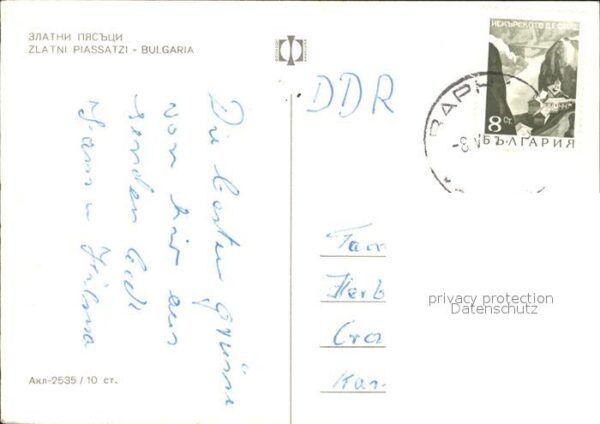 ЗЛАТНИ ПЯСЪЦИ
ZLATNI PIASSATZI - BULGARIA
Die besten Grüsse
von hier aus
senden Euch
Hilma
Акл-2535 / 10 ст.
DDR
ИСКЪРСКОТО ДЕФИЛЕ
8 Ст.
БЪЛГАРИЯ
ВАРН
-8 V
Fam
Herb
privacy protection
Datenschutz